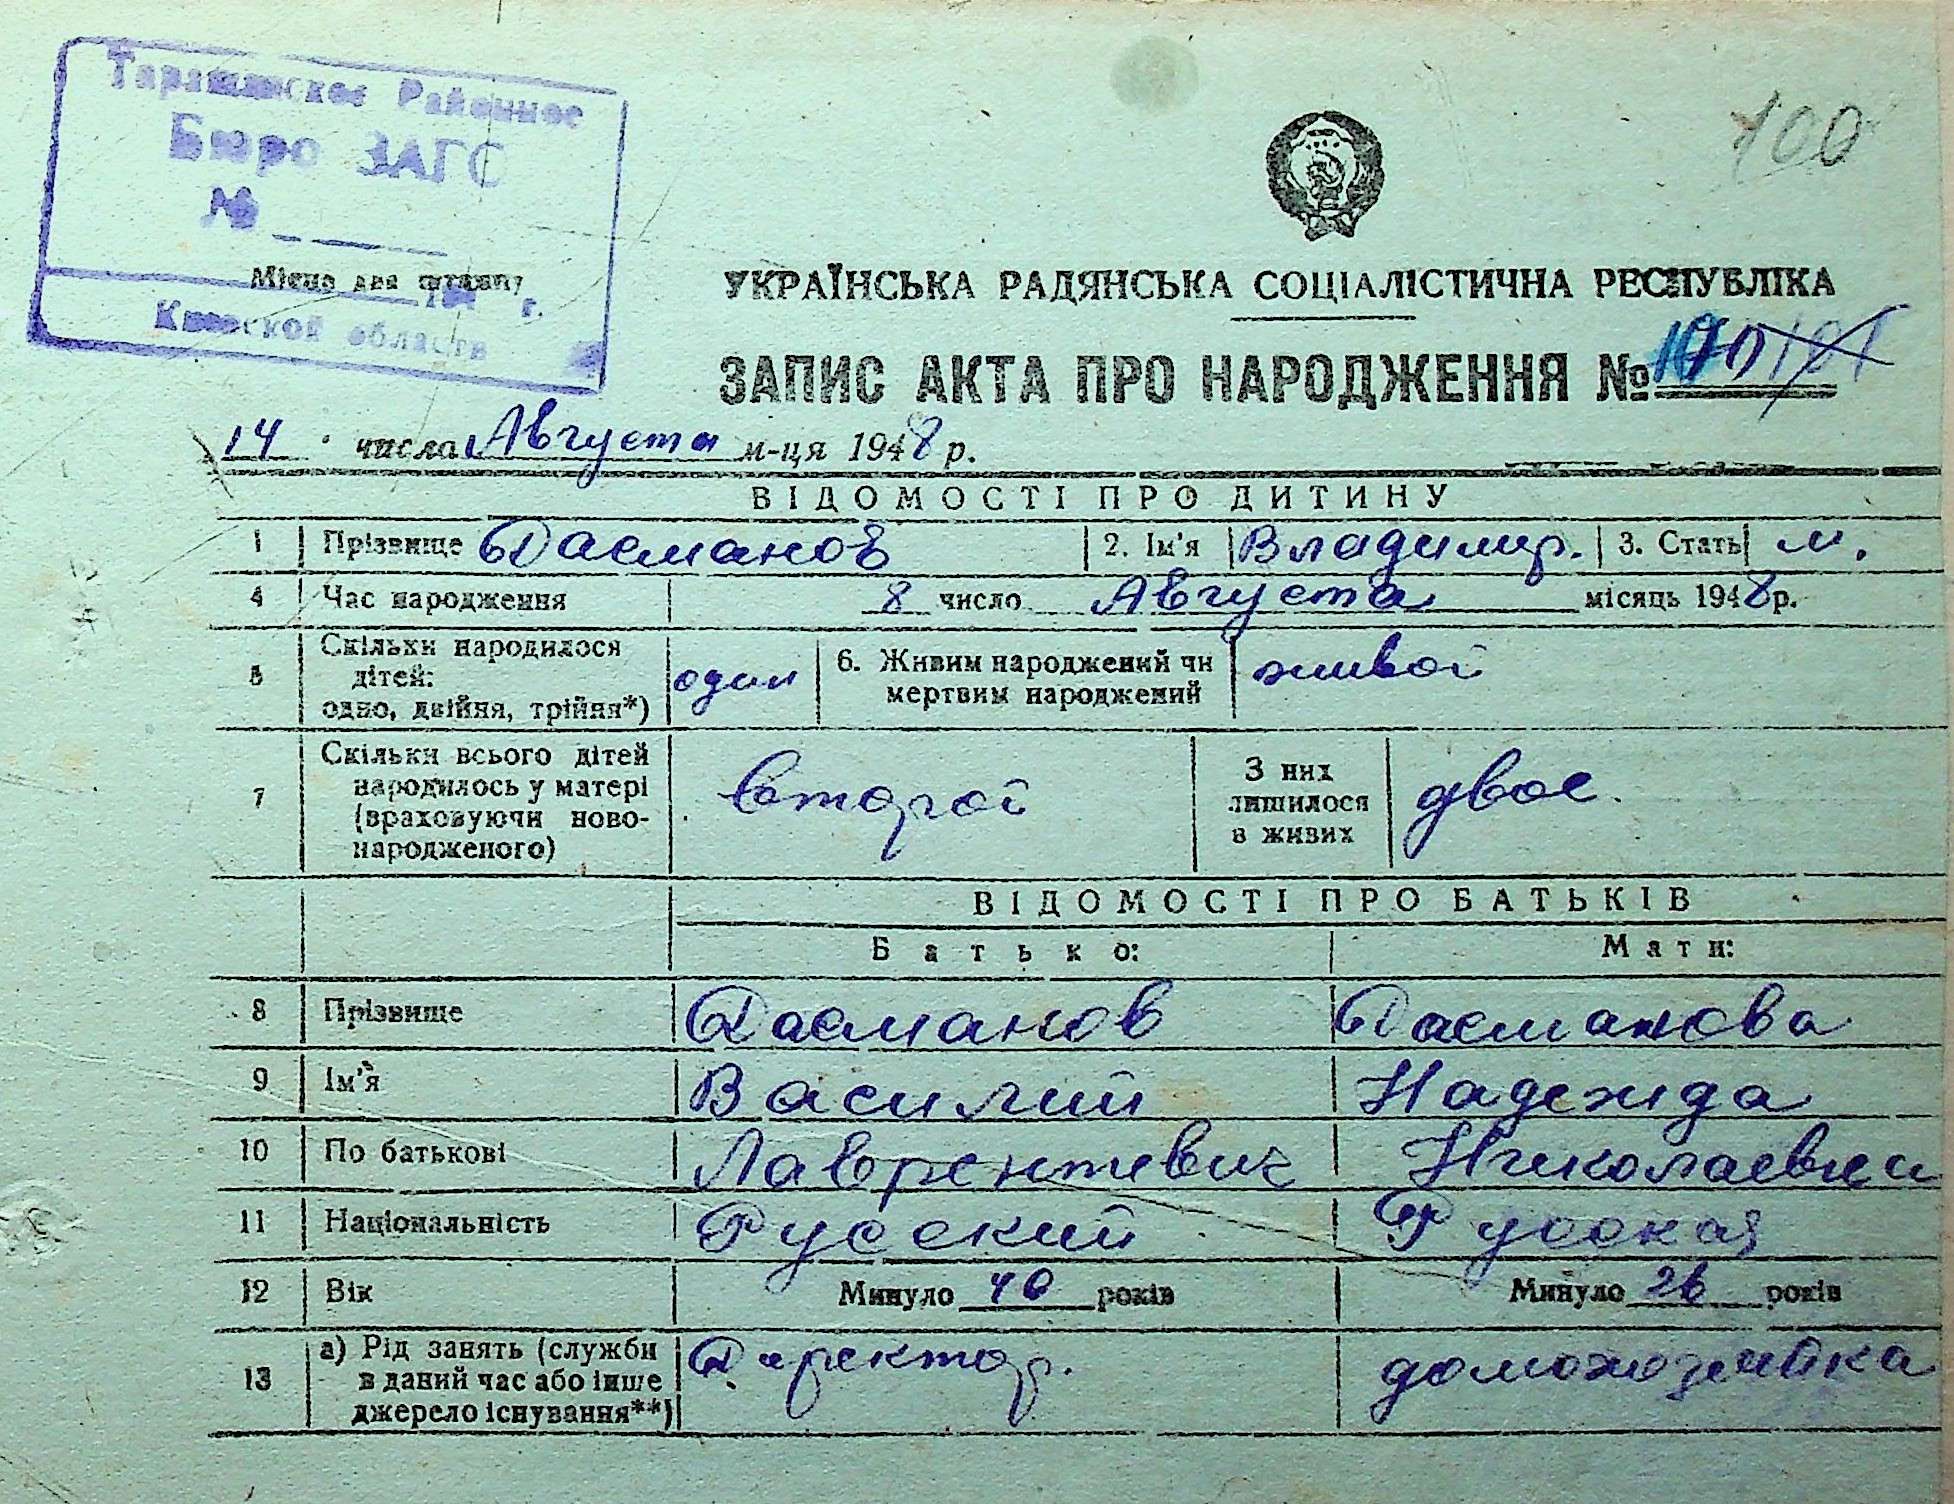 Таращанское Районное
Бюро ЗАГС
№
Місце для штампу
194 г.
Киевской области
100
УКРАЇНСЬКА РАДЯНСЬКА СОЦІАЛІСТИЧНА РЕСПУБЛІКА
ЗАПИС АКТА ПРО НАРОДЖЕННЯ № 100 101
14 числа Августа м-ця 1948 р.
ВІДОМОСТІ ПРО ДИТИНУ
1 Прізвище Дасманов 2. Ім'я Владимир. 3. Стать м.
4 Час народження 8 число Августа місяць 1948 р.
5 Скільки народилося дітей: одно, двійня, трійня*) один 6. Живим народжений чи мертвим народжений живой
7 Скільки всього дітей народилось у матері (враховуючи новонародженого) второй З них лишилося в живих двое.
ВІДОМОСТІ ПРО БАТЬКІВ
Батько: Мати:
8 Прізвище Дасманов Дасманова
9 Ім'я Василий Надежда
10 По батькові Лаврентевич Николаевна
11 Національність Русский Русская
12 Вік Минуло 40 років Минуло 26 років
13 а) Рід занять (служби в даний час або інше джерело існування**) Директор. домохозяйка